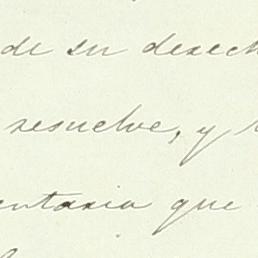 de su derech
resuelve, y
entaria que